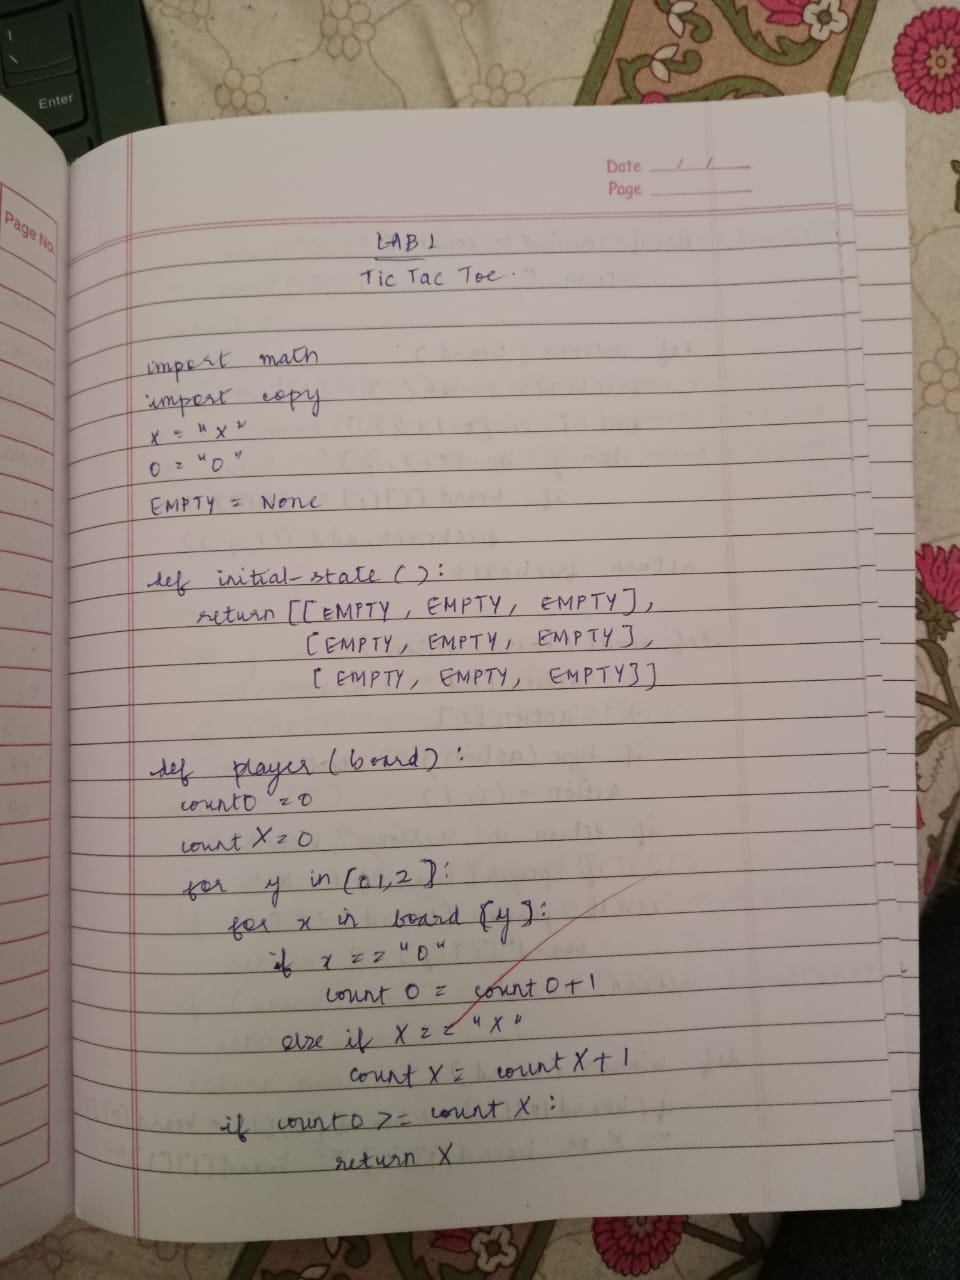 Enter
Page No.
Date / /
Page
LAB 1
Tic Tac Toe.
import math
import copy
X = "X"
O = "O"
EMPTY = None
def initial-state ():
return [[EMPTY, EMPTY, EMPTY],
[EMPTY, EMPTY, EMPTY],
[EMPTY, EMPTY, EMPTY]]
def player (board):
countO = 0
count X = 0
for y in [0,1,2]:
for x in board [y]:
if x == "O"
count O = count O+1
else if X == "X"
count X = count X+1
if countO >= count X:
return X